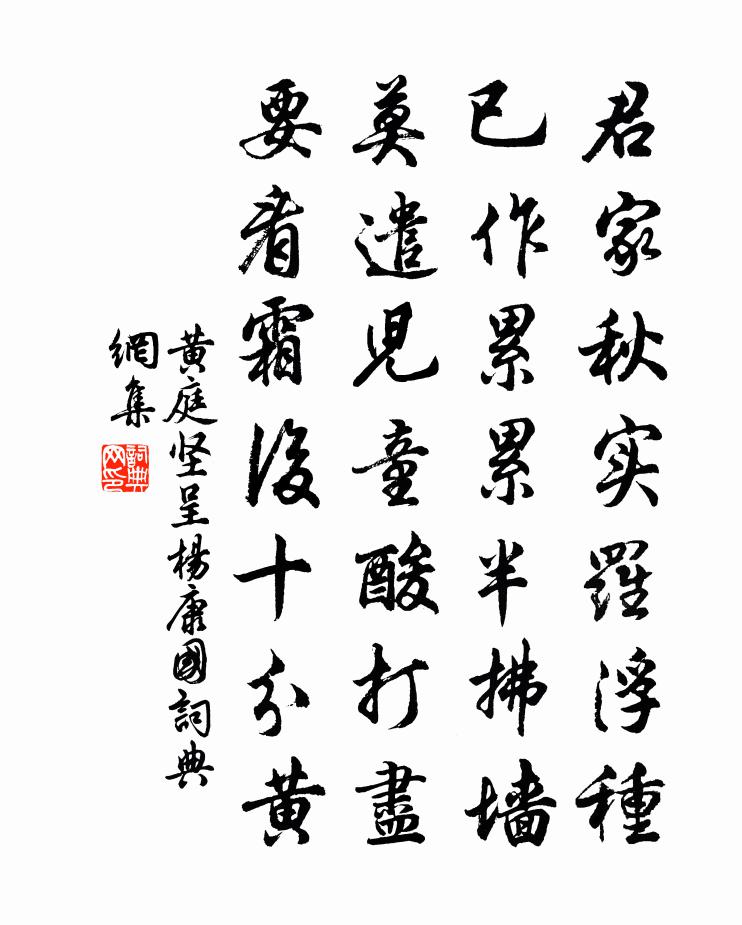 君家秋实羅浮種
已作累累半拂墙
莫遣児童酸打盡
要看霜後十分黄
黄庭坚呈楊康國詞典
網集
詞典網印